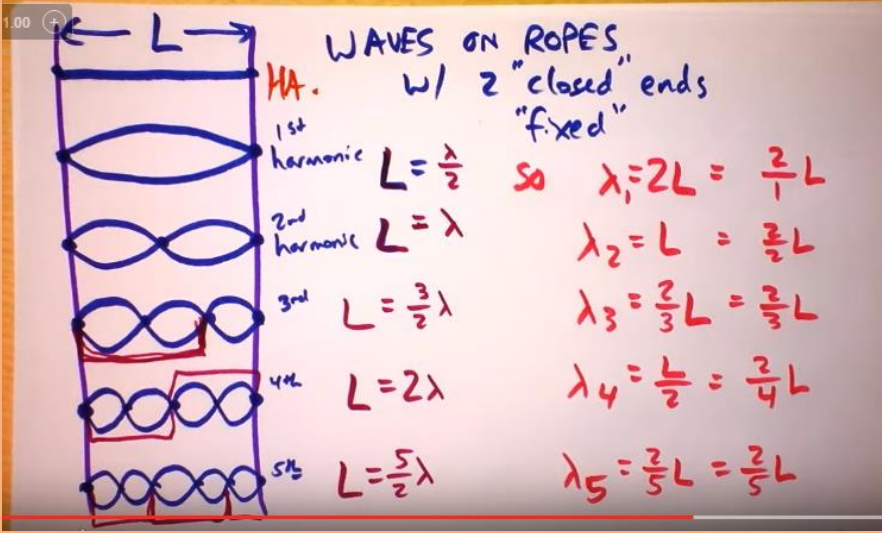 1.00 +
← L →
WAVES ON ROPES
HA. w/ 2 "closed" ends
"fixed"
1st harmonic L = λ/2 so λ₁ = 2L = 2/1 L
2nd harmonic L = λ λ₂ = L = 2/2 L
3rd L = 3/2 λ λ₃ = 2/3 L = 2/3 L
4th L = 2λ λ₄ = L/2 = 2/4 L
5th L = 5/2 λ λ5 = 2/5 L = 2/5 L